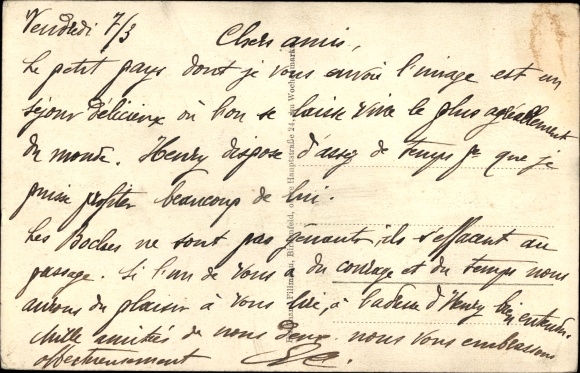 Vendredi 7/3
Chers amis,
Le petit pays dont je vous envoie l'image est un
séjour délicieux où l'on se laisse vivre le plus agréablement
du monde. Henry dispose d'assez de temps pr que je
puisse profiter beaucoup de lui.
Les Boches ne sont pas gênants, ils s'effacent au
passage. Si l'un de vous a du courage et du temps nous
aurons du plaisir à vous lire, à l'adresse d'Henry bien entendu.
Mille amitiés de nous deux. nous vous embrassons
affectueusement
Filiman, Birkenfeld, obere Hauptstraße 24, am Wochenmarkt